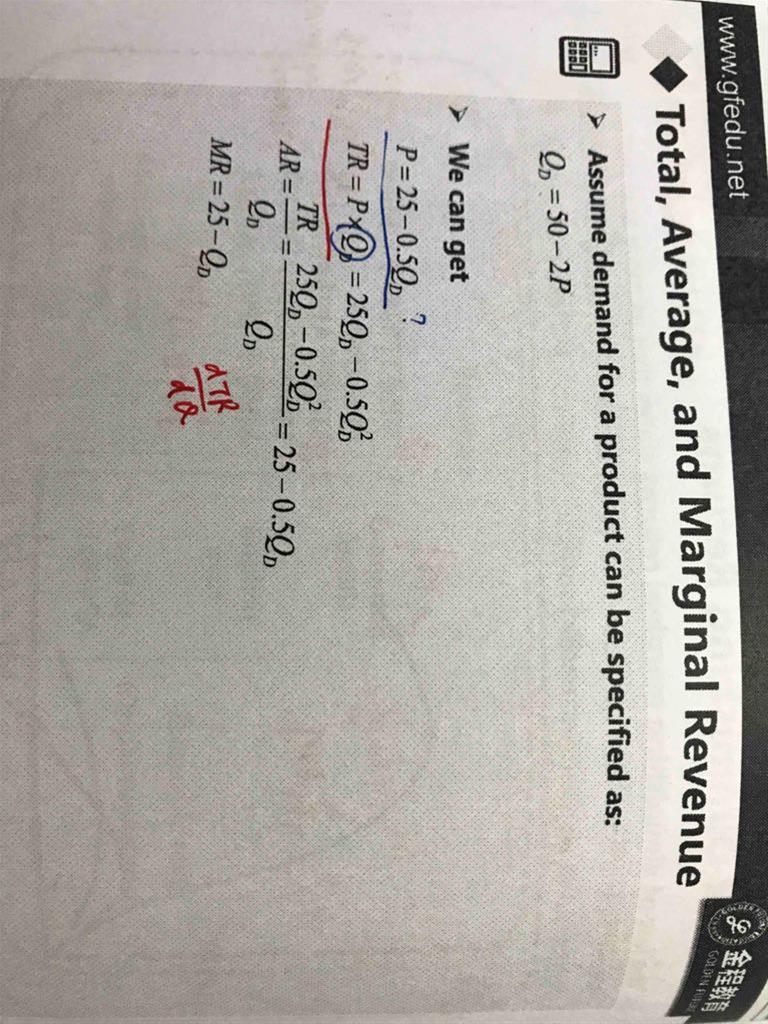 www.gfedu.net
金程教育
GOLDEN FUTURE
Total, Average, and Marginal Revenue
➢ Assume demand for a product can be specified as:
Q_D = 50 − 2P
➢ We can get
P = 25 − 0.5Q_D ?
TR = P × Q_D = 25Q_D − 0.5Q_D²
AR = TR / Q_D = (25Q_D − 0.5Q_D²) / Q_D = 25 − 0.5Q_D
MR = 25 − Q_D
dTR / dQ